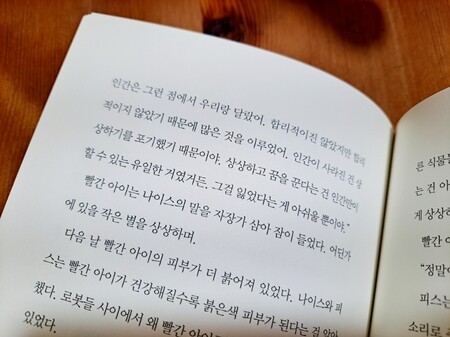 인간은 그런 점에서 우리랑 달랐어. 합리적이진 않았지만 합리
적이지 않았기 때문에 많은 것을 이루었어. 인간이 사라진 건 상
상하기를 포기했기 때문이야. 상상하고 꿈을 꾼다는 건 인간만이
할 수 있는 유일한 거였거든. 그걸 잃었다는 게 아쉬울 뿐이야.”
빨간 아이는 나이스의 말을 자장가 삼아 잠이 들었다. 어딘가
에 있을 작은 별을 상상하며.
다음 날 빨간 아이의 피부가 더 붉어져 있었다. 나이스와 피
스는 빨간 아이가 건강해질수록 붉은색 피부가 된다는 걸 알아
챘다. 로봇들 사이에서 왜 빨간 아이
있었다.
른 식물들
는 건 아
게 상상하
빨간 아
“정말이
피스는
소리로